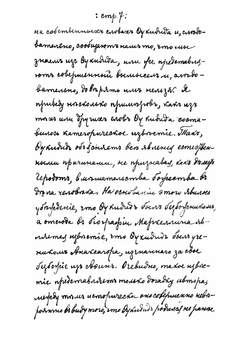 : стр 7 :
на собственных словах Фукидида и, следо-
вательно, сообщают нам то, что мы
знаем из Фукидида, или же представля-
ют совершенный вымысел и, следо-
вательно, доверять им нельзя. Я
приведу несколько примеров, как из
тех или других слов Фукидида соста-
вилось категорическое известие. Так,
Фукидид объясняет все явления естествен-
ными причинами, не признавая, как делает
Геродот, вмешательства божества в
дела человека. На основании этого явилось
убеждение, что Фукидид был безбожником,
а отсюда в биографии Маркеллина яв-
ляется известие, что Фукидид был уче-
ником Анаксагора, изгнанного за свое
безбожие из Афин. Очевидно, такое извес-
тие представляет только догадку автора,
между тем исторически оно совершенно неве-
роятно в виду того, что Фукидид родился не раньше